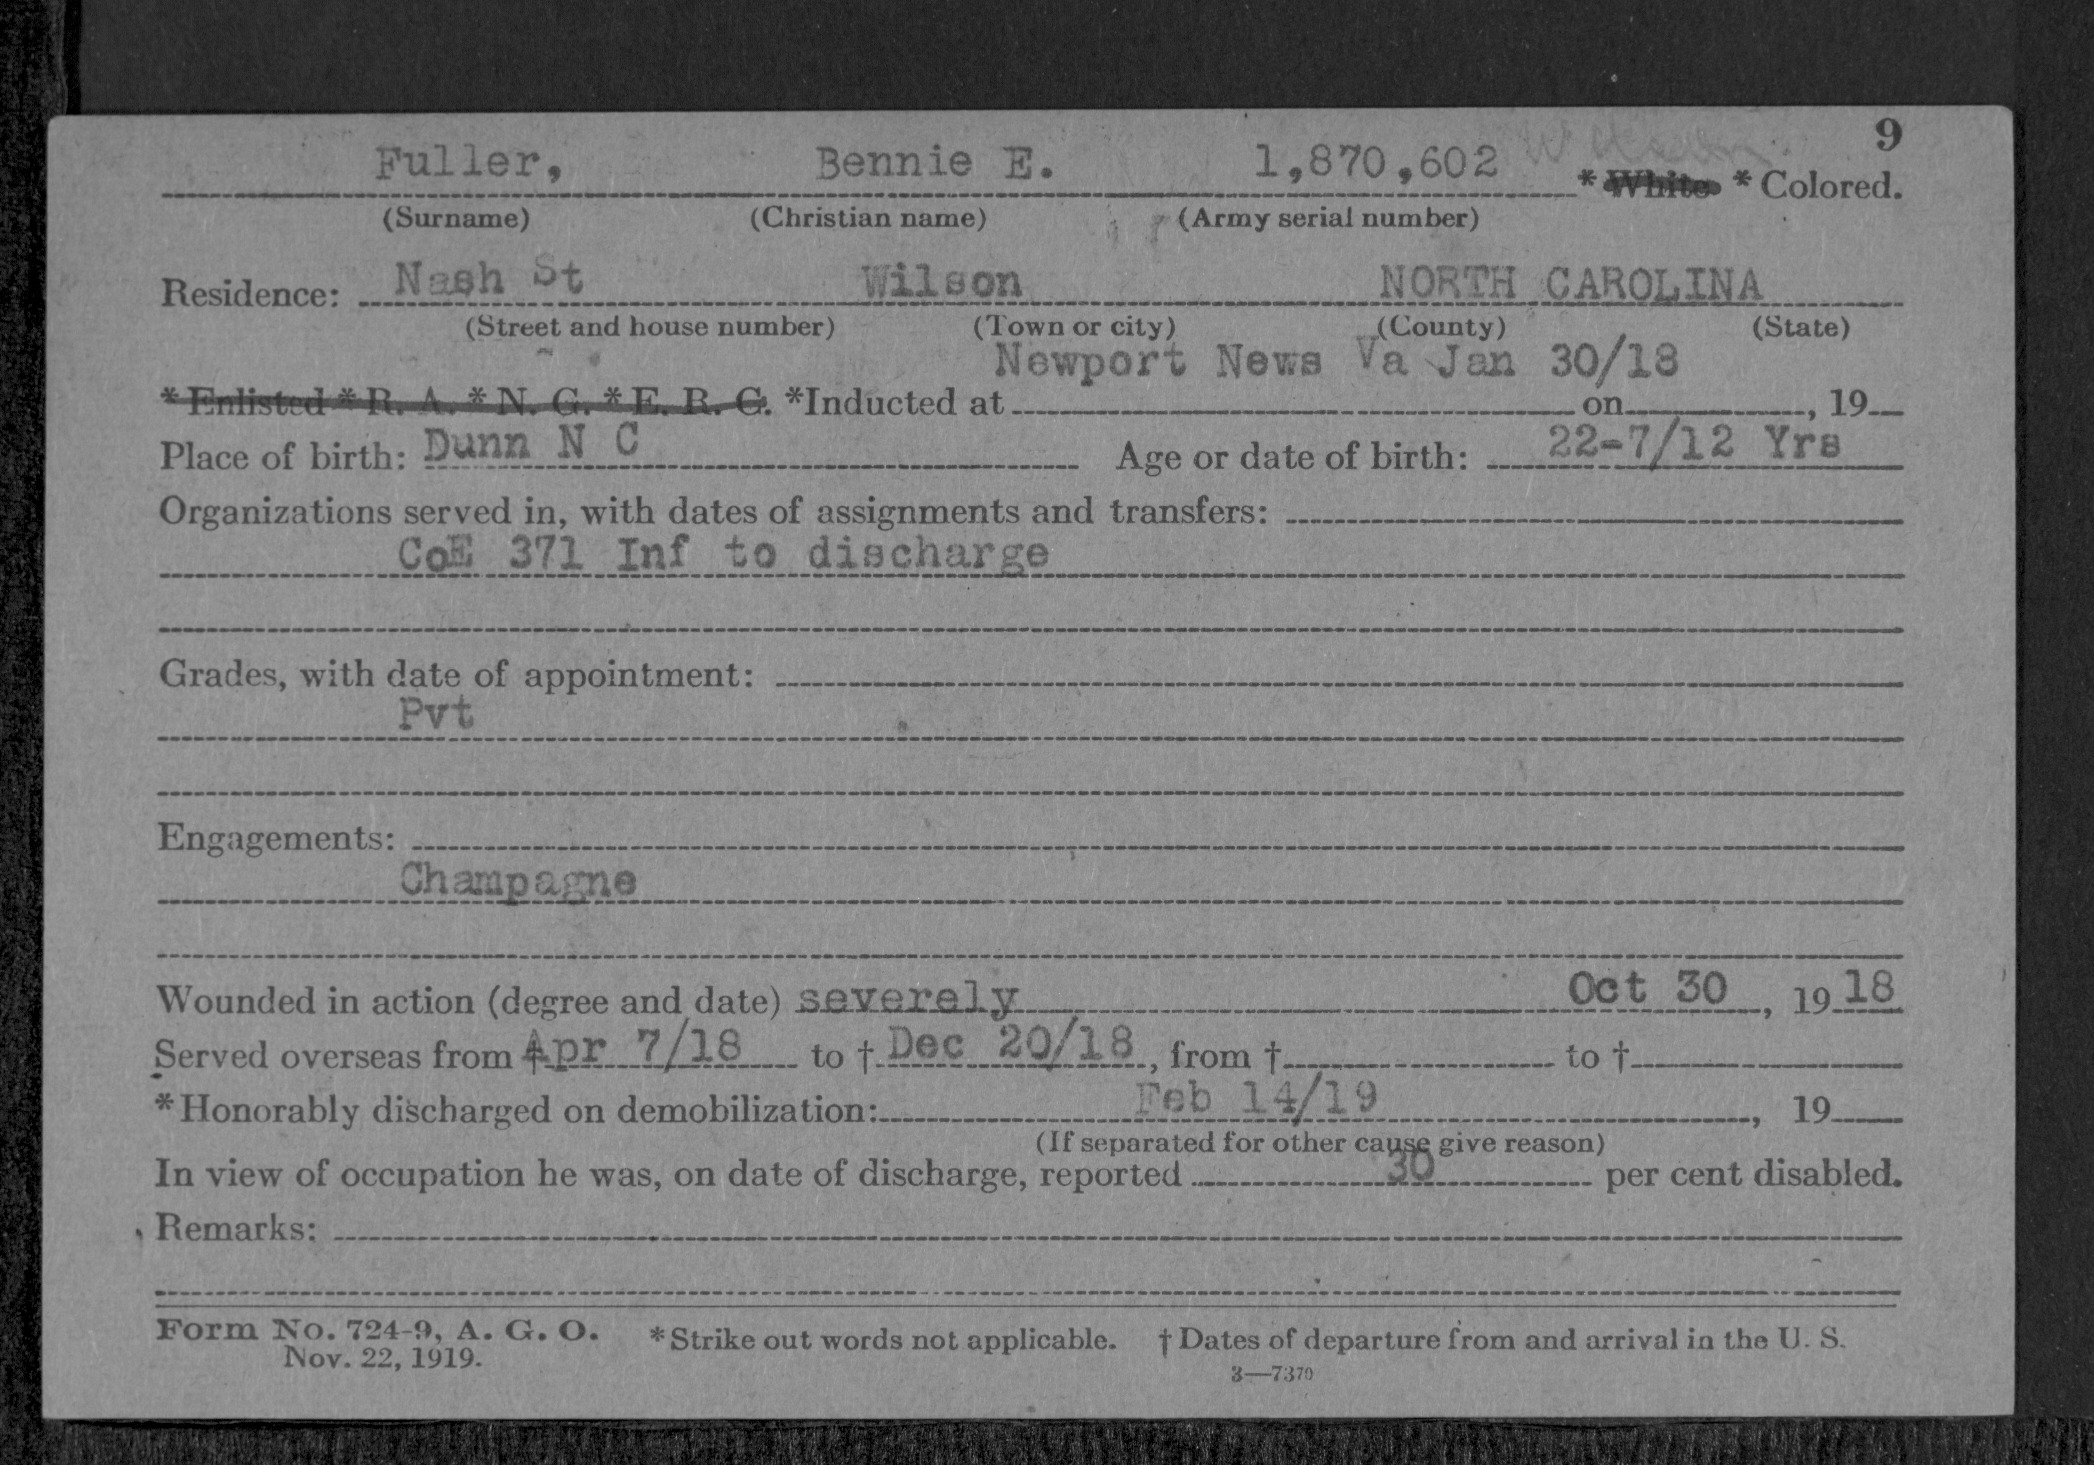 9
Fuller, Bennie E. 1,870,602 * White * Colored.
(Surname) (Christian name) (Army serial number)
Residence: Nash St Wilson NORTH CAROLINA
(Street and house number) (Town or city) (County) (State)
Newport News Va Jan 30/18
* Enlisted * R. A. * N. G. * E. R. C. *Inducted at on , 19
Place of birth: Dunn N C Age or date of birth: 22-7/12 Yrs
Organizations served in, with dates of assignments and transfers:
CoE 371 Inf to discharge
Grades, with date of appointment:
Pvt
Engagements:
Champagne
Wounded in action (degree and date) severely Oct 30, 1918
Served overseas from † Apr 7/18 to † Dec 20/18, from † to †
*Honorably discharged on demobilization: Feb 14/19 , 19
(If separated for other cause give reason)
In view of occupation he was, on date of discharge, reported 30 per cent disabled.
Remarks:
Form No. 724-9, A. G. O. *Strike out words not applicable. † Dates of departure from and arrival in the U. S.
Nov. 22, 1919.
3—7370